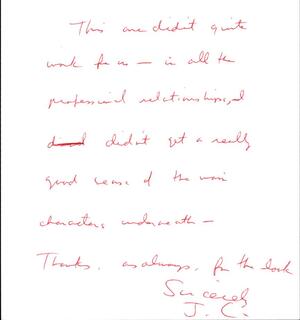 This one didn't quite
work for us — in all the
professional relationships, I
didn't get a really
good sense of the main
characters underneath —
Thanks, as always, for the look
Sincerely
J. C.